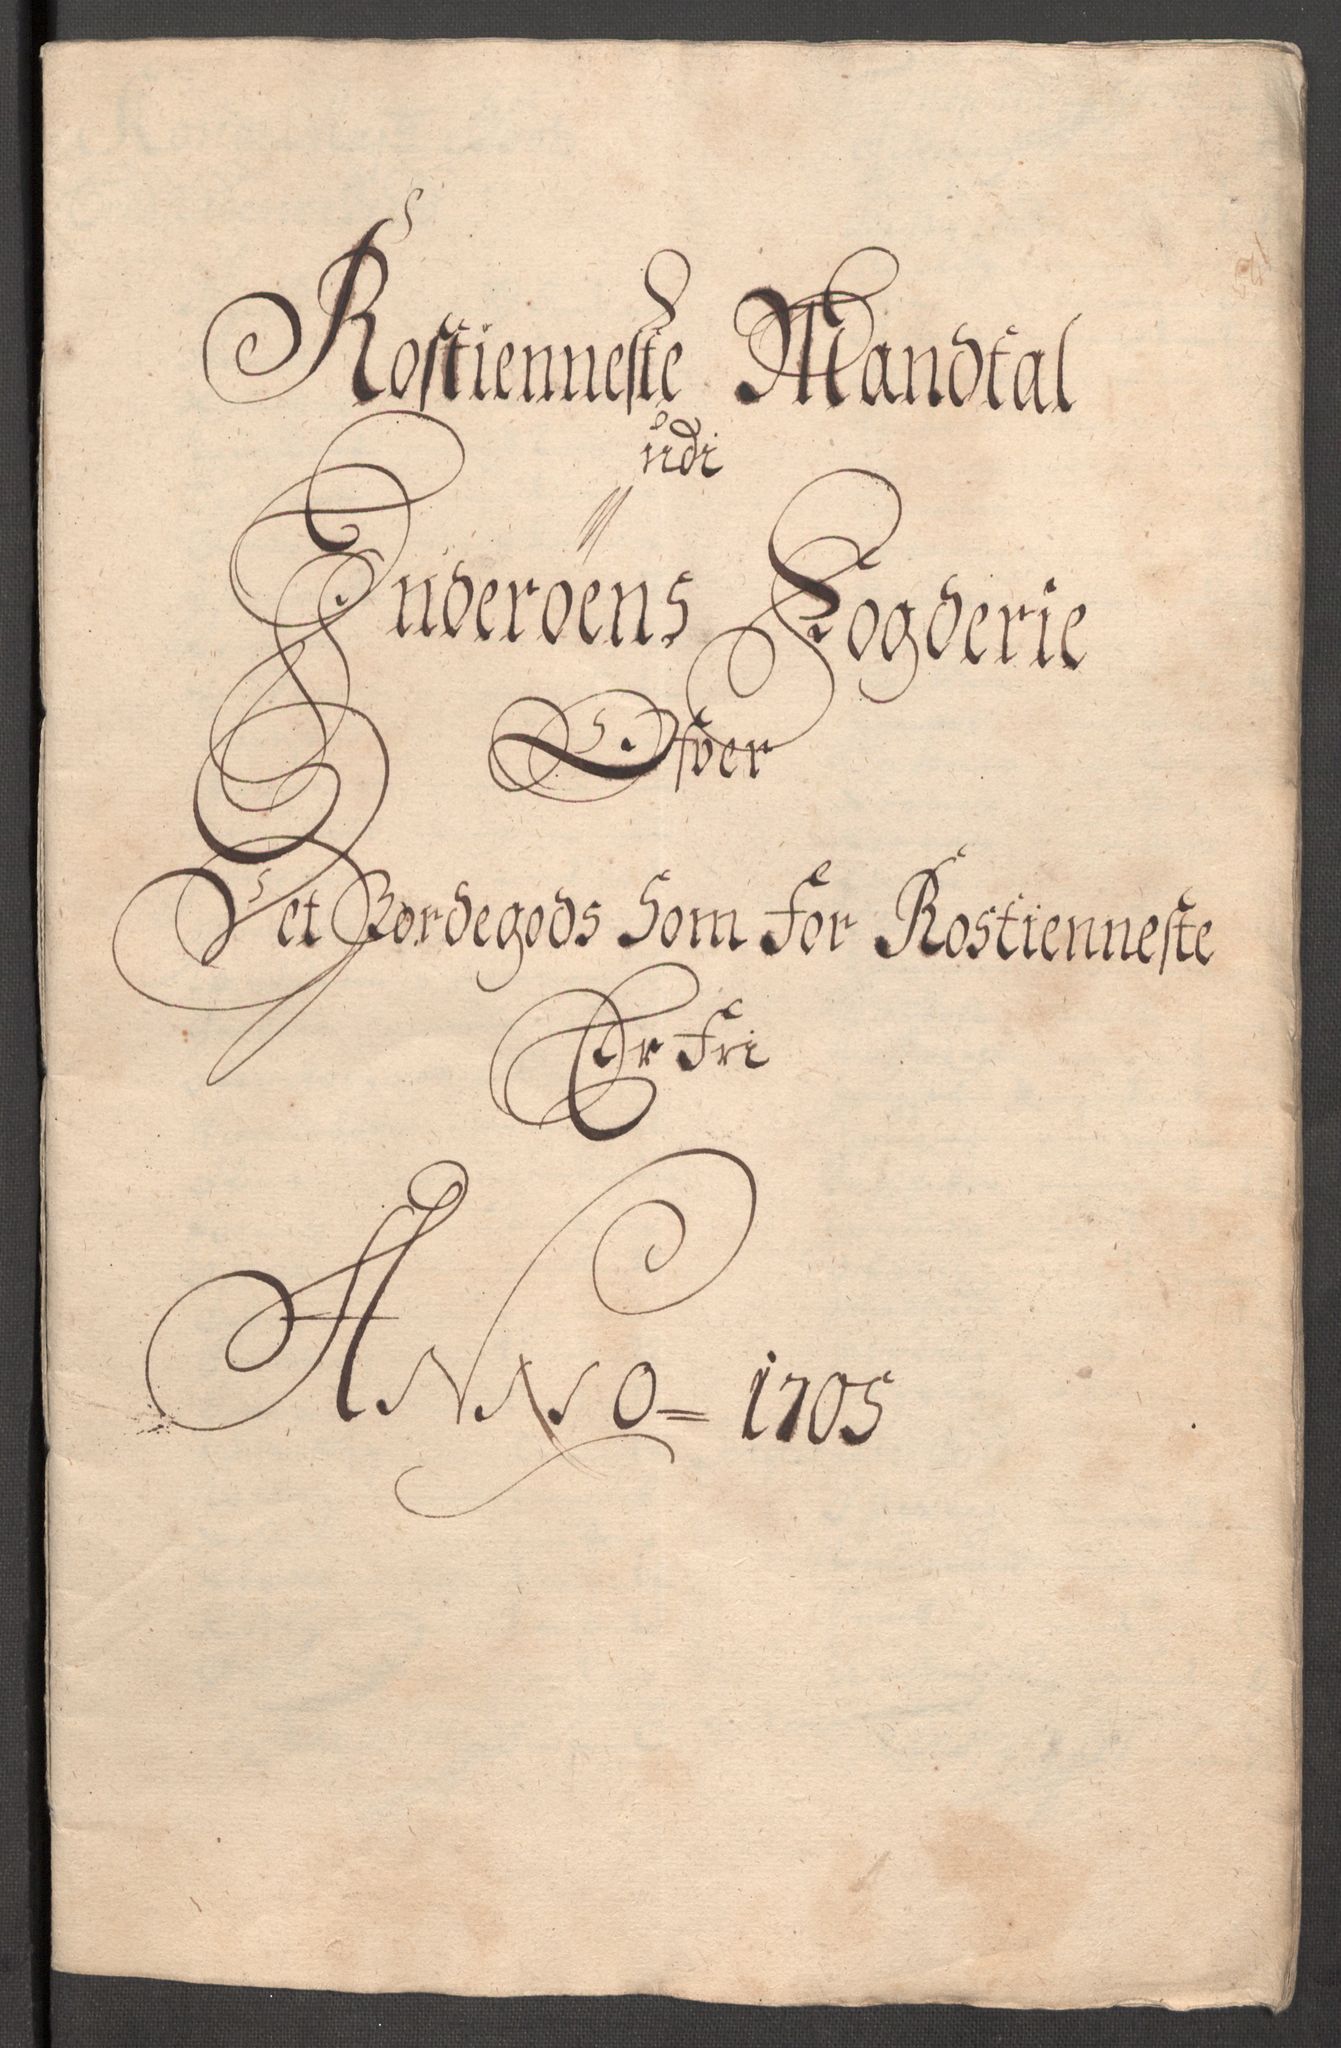 Rostienneste Mandtal
udi
Inderøens Fogderie
Ofver
Det Jordegods Som for Rostienneste
Er Fri
ANNO = 1705